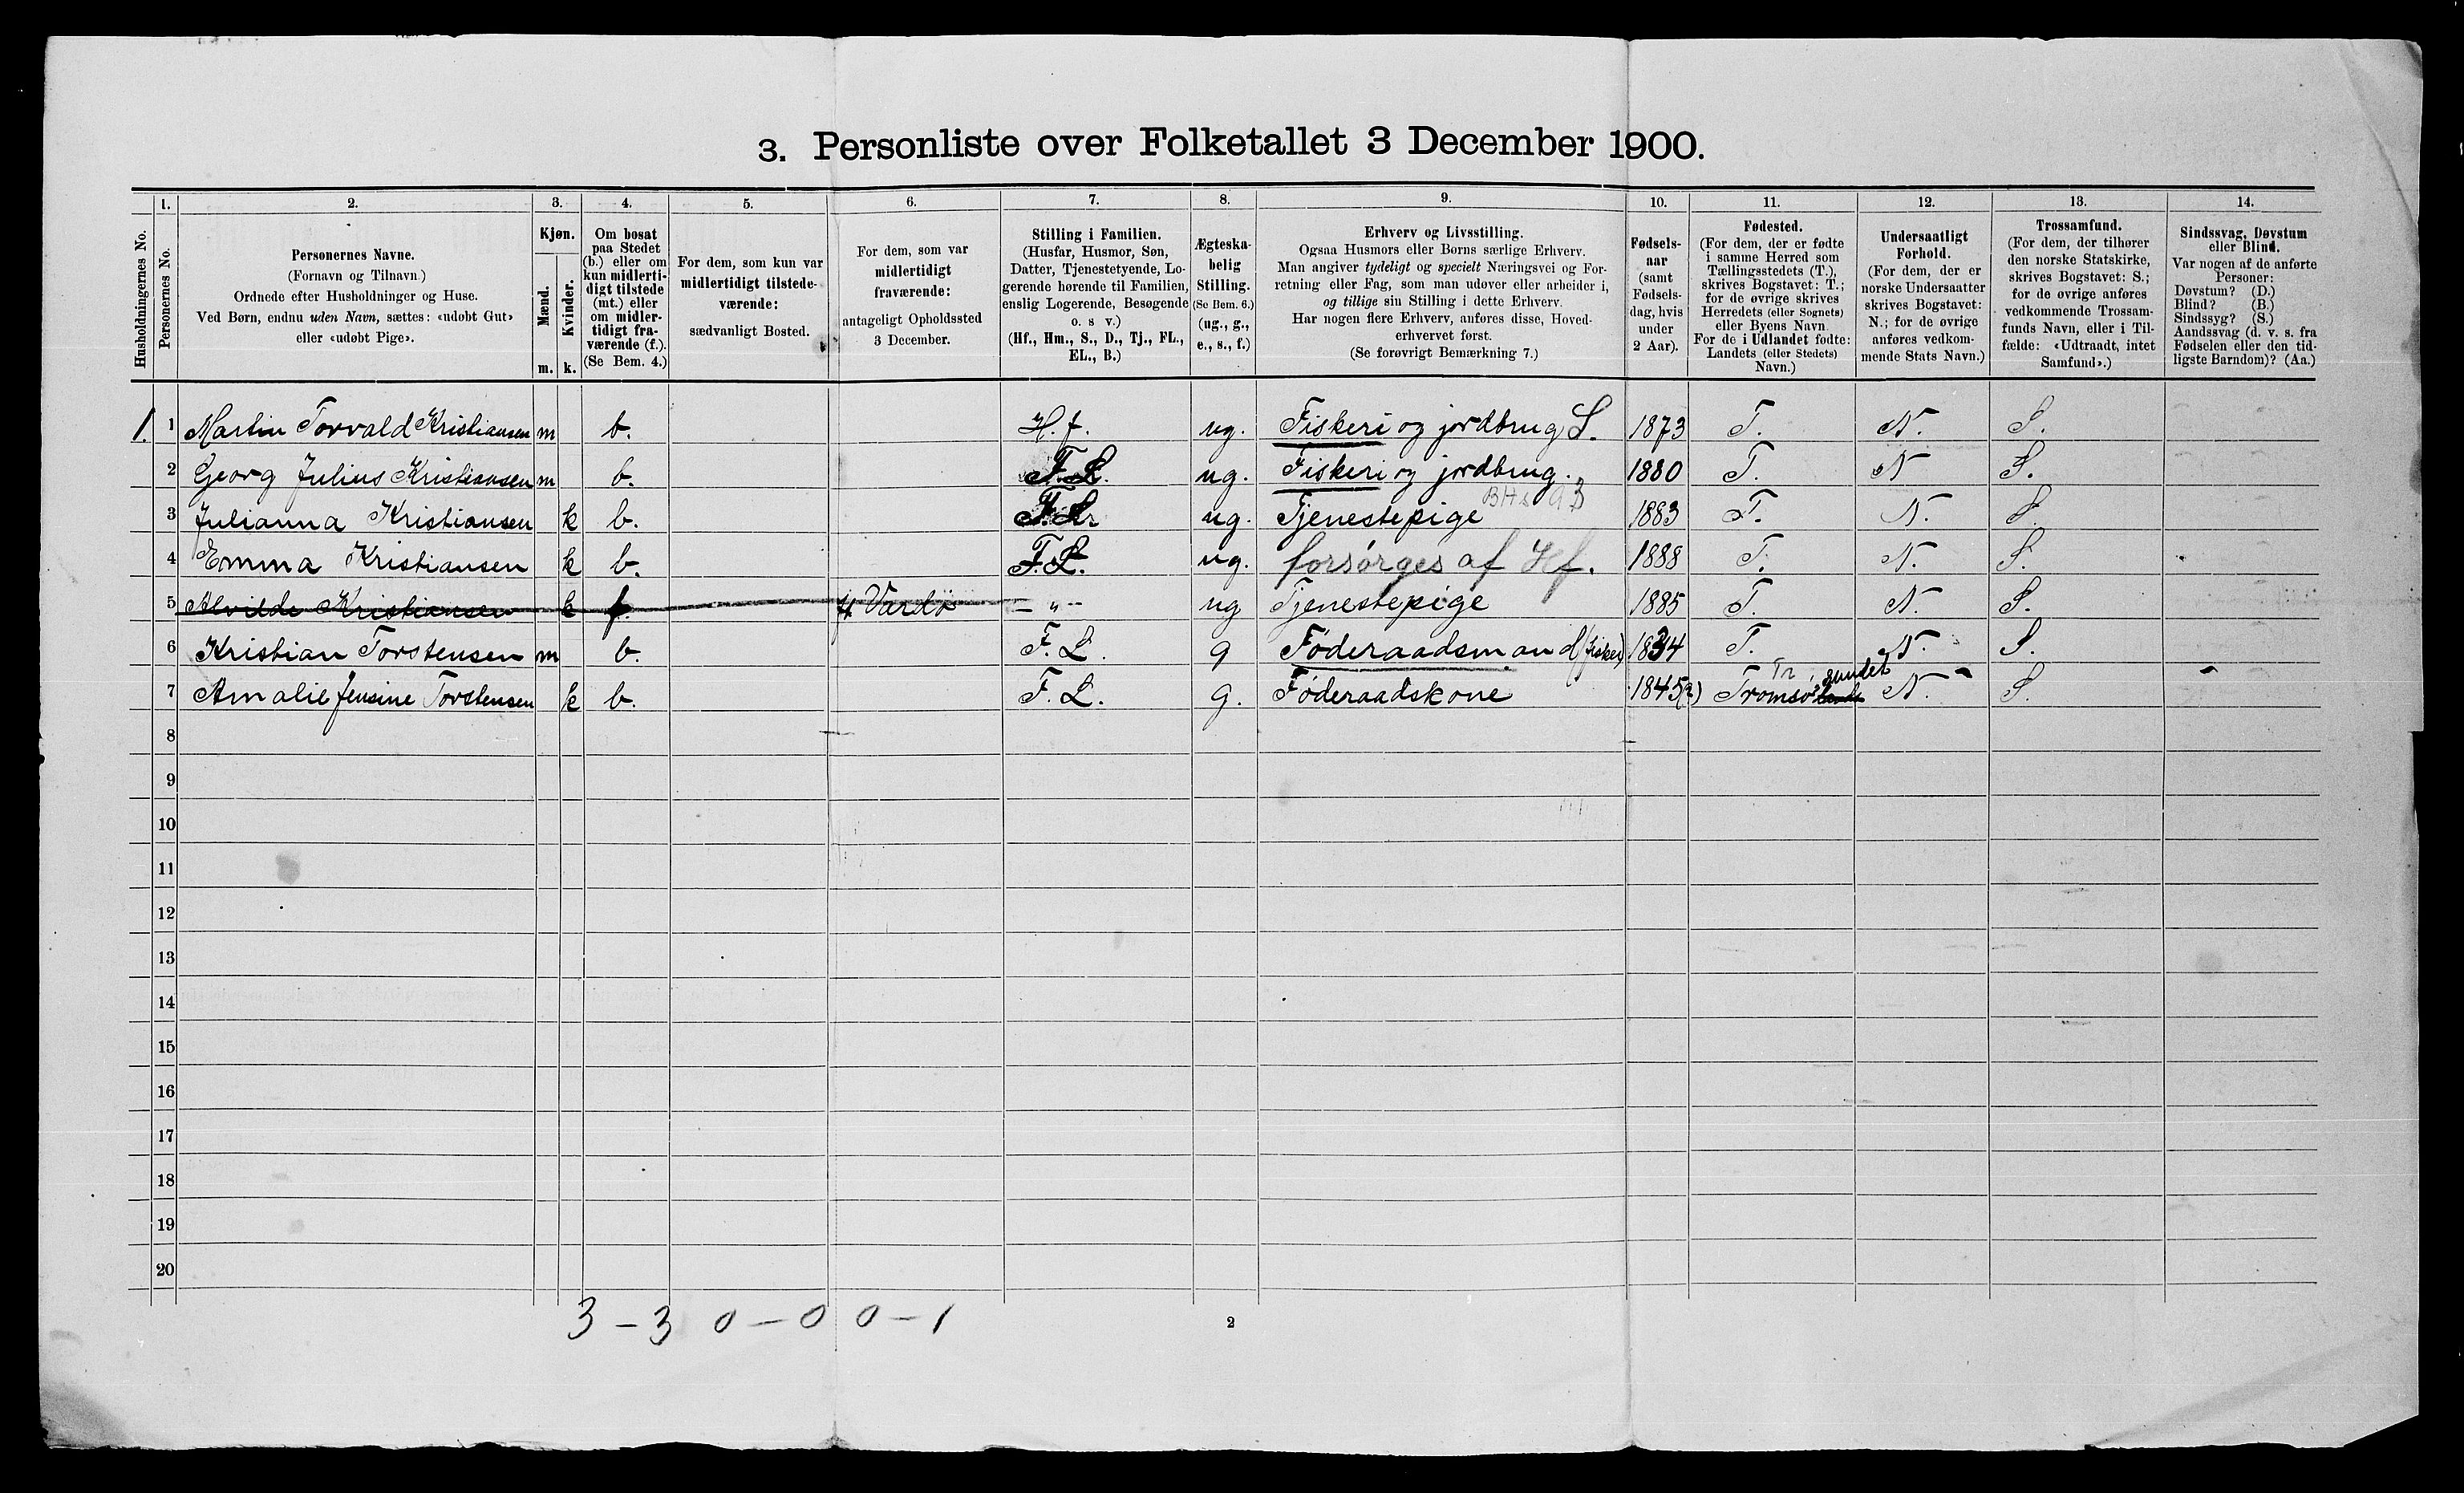 3. Personliste over Folketallet 3 December 1900.
Husholdningernes No.
1.
Personernes No.
2.
Personernes Navne.
(Fornavn og Tilnavn.)
Ordnede efter Husholdninger og Huse.
Ved Børn, endnu uden Navn, sættes: «udøbt Gut»
eller «udøbt Pige».
3.
Kjøn.
Mænd.
Kvinder.
m. k.
4.
Om bosat
paa Stedet
(b.) eller om
kun midlerti-
digt tilstede
(mt.) eller
om midler-
tidigt fra-
værende (f.).
(Se Bem. 4.)
5.
For dem, som kun var
midlertidigt tilstede-
værende:
sædvanligt Bosted.
6.
For dem, som var
midlertidigt
fraværende:
antageligt Opholdssted
3 December.
7.
Stilling i Familien.
(Husfar, Husmor, Søn,
Datter, Tjenestetyende, Lo-
gerende hørende til Familien,
enslig Logerende, Besøgende
o. s v.)
(Hf., Hm., S., D., Tj., FL.,
EL., B.)
8.
Ægteska-
belig
Stilling.
(Se Bem. 6.)
(ug., g.,
e., s., f.)
9.
Erhverv og Livsstilling.
Ogsaa Husmors eller Børns særlige Erhverv.
Man angiver tydeligt og specielt Næringsvei og For-
retning eller Fag, som man udøver eller arbeider i,
og tillige sin Stilling i dette Erhverv.
Har nogen flere Erhverv, anføres disse, Hoved-
erhvervet først.
(Se forøvrigt Bemærkning 7.)
10.
Fødsels-
aar
(samt
Fødsels-
dag, hvis
under
2 Aar).
11.
Fødested.
(For dem, der er fødte
i samme Herred som
Tællingsstedets (T.),
skrives Bogstavet: T.;
for de øvrige skrives
Herredets (eller Sognets)
eller Byens Navn.
For de i Udlandet fødte:
Landets (eller Stedets)
Navn.)
12.
Undersaatligt
Forhold.
(For dem, der er
norske Undersaatter
skrives Bogstavet:
N.; for de øvrige
anføres vedkom-
mende Stats Navn.)
13.
Trossamfund.
(For dem, der tilhører
den norske Statskirke,
skrives Bogstavet: S.;
for de øvrige anføres
vedkommende Trossam-
funds Navn, eller i Til-
fælde: «Udtraadt, intet
Samfund».)
14.
Sindssvag, Døvstum
eller Blind.
Var nogen af de anførte
Personer:
Døvstum? (D.)
Blind? (B.)
Sindssyg? (S.)
Aandssvag (d. v. s. fra
Fødselen eller den tid-
ligste Barndom)? (Aa.)
1. 1 Martin Torvald Kristiansen m b. H.f. ug. Fiskeri og jordbrug S. 1873 T. N. S.
2 Georg Julius Kristiansen m b. F.L. ug. Fiskeri og jordbrug. 1880 T. N S.
3 Julianna Kristiansen k b. F.L. ug. Tjenestepige 1883 T. N. S.
4 Emma Kristiansen k b. F.L. ug. forsørges af Hf. 1888 T. N. S.
5 Alvilde Kristiansen k f. Vardø - " - ug Tjenestepige 1885 T. N. S.
6 Kristian Torstensen m b. F.L. g Føderaadsmand (fisker) 1834 T. N. S.
Tr. sundet
7 Amalie Jensine Torstensen k b. F.L. g. Føderaadskone 1845(?) Tromsø N. S.
8
9
10
11
12
13
14
15
16
17
18
19
20
3 - 3 0 - 0 0 - 1
2